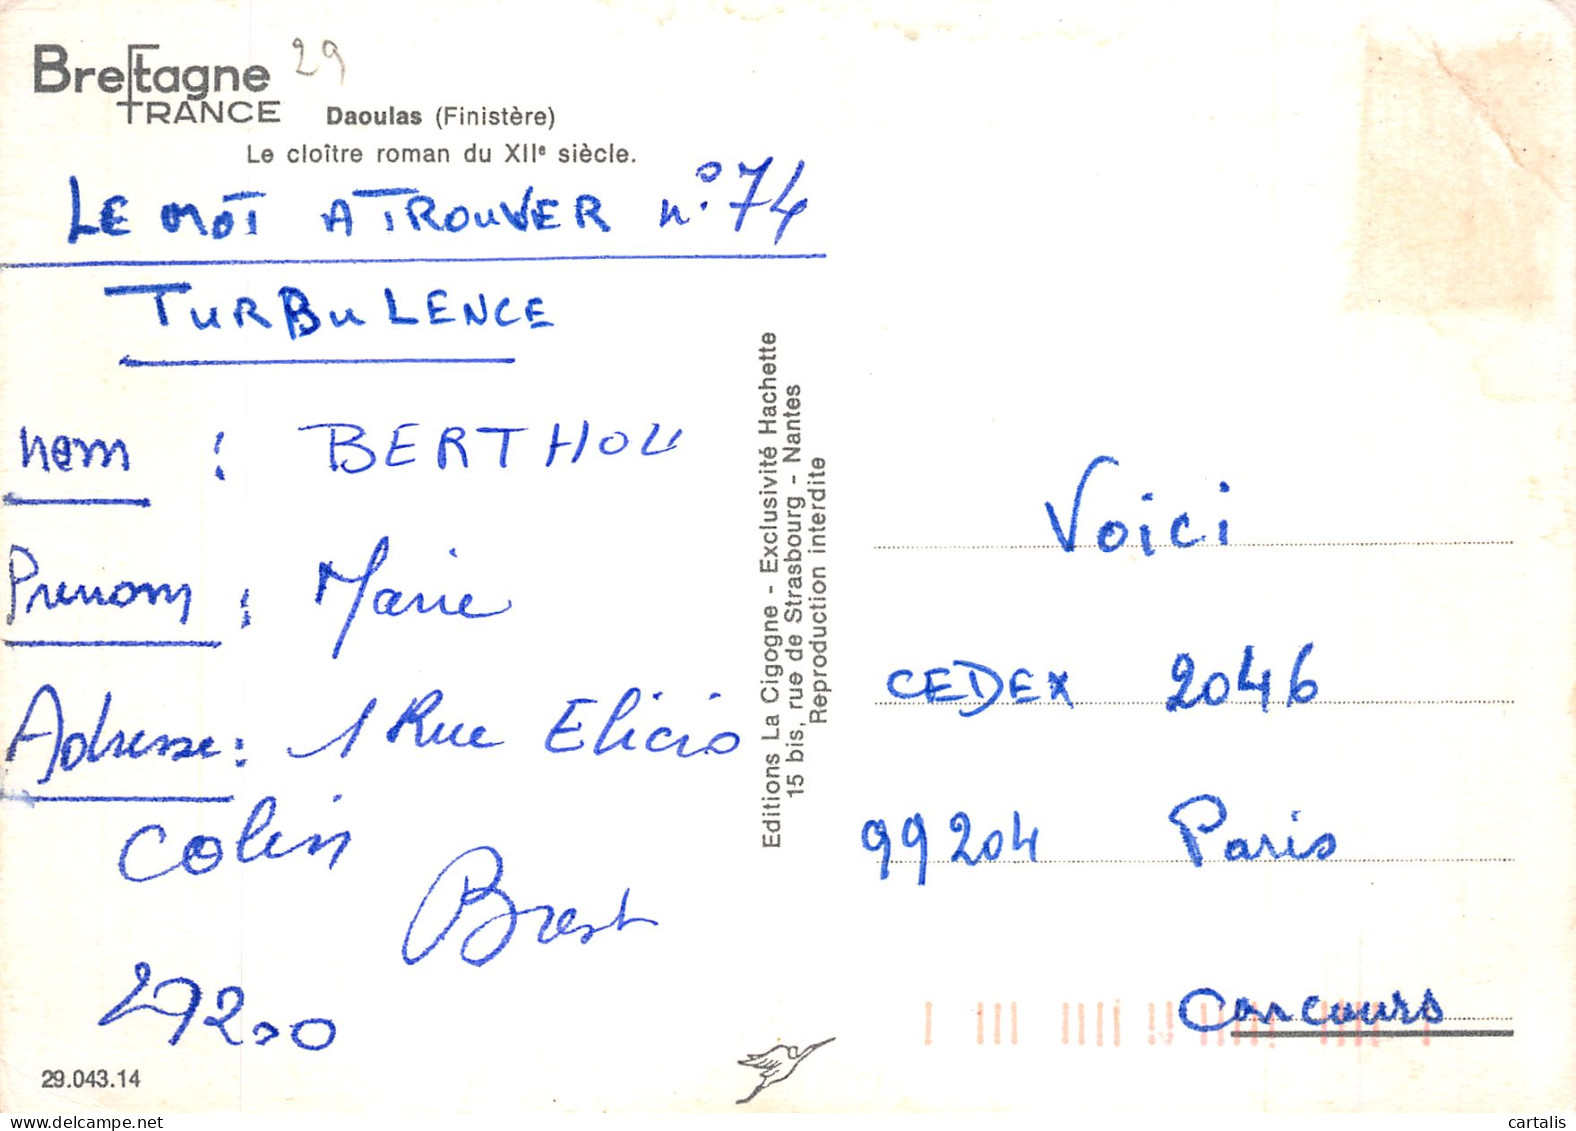 Bretagne 29
FRANCE
Daoulas (Finistère)
Le cloître roman du XIIe siècle.
LE MOT A TROUVER n° 74
TURBULENCE
nom : BERTHOU
Prenom : Marie
Adresse : 1 Rue Elicio
Colin
Brest
29200
29.043.14
Editions La Cigogne - Exclusivité Hachette
15 bis, rue de Strasbourg - Nantes
Reproduction interdite
Voici
CEDEX 2046
99204 Paris
Concours
cartalis